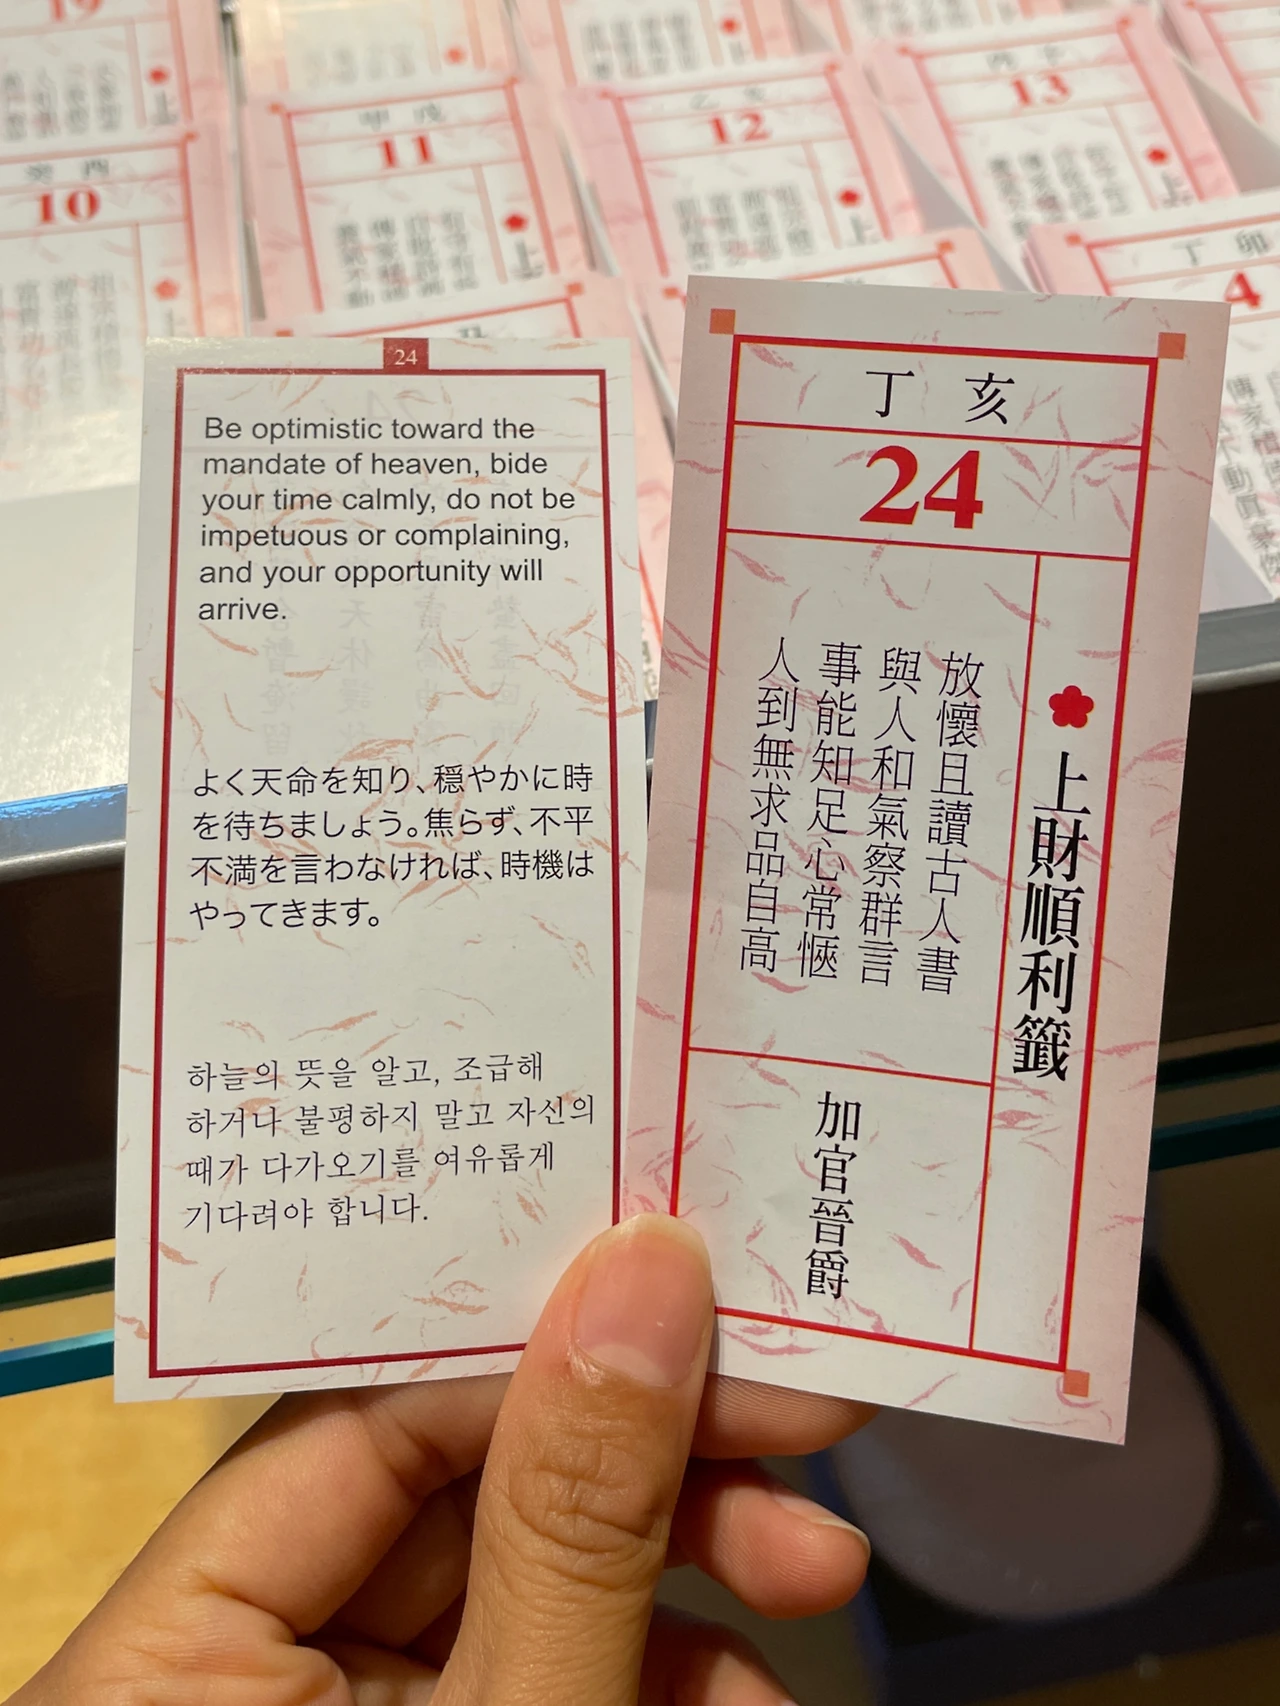 24
Be optimistic toward the
mandate of heaven, bide
your time calmly, do not be
impetuous or complaining,
and your opportunity will
arrive.
よく天命を知り、穏やかに時
を待ちましょう。焦らず、不平
不満を言わなければ、時機は
やってきます。
하늘의 뜻을 알고, 조급해
하거나 불평하지 말고 자신의
때가 다가오기를 여유롭게
기다려야 합니다.
丁亥
24
上財順利籤
放懷且讀古人書
與人和氣察群言
事能知足心常愜
人到無求品自高
加官晉爵
19
癸酉
10
上
甲戌
11
上
乙亥
12
上
13
上
丁卯
4